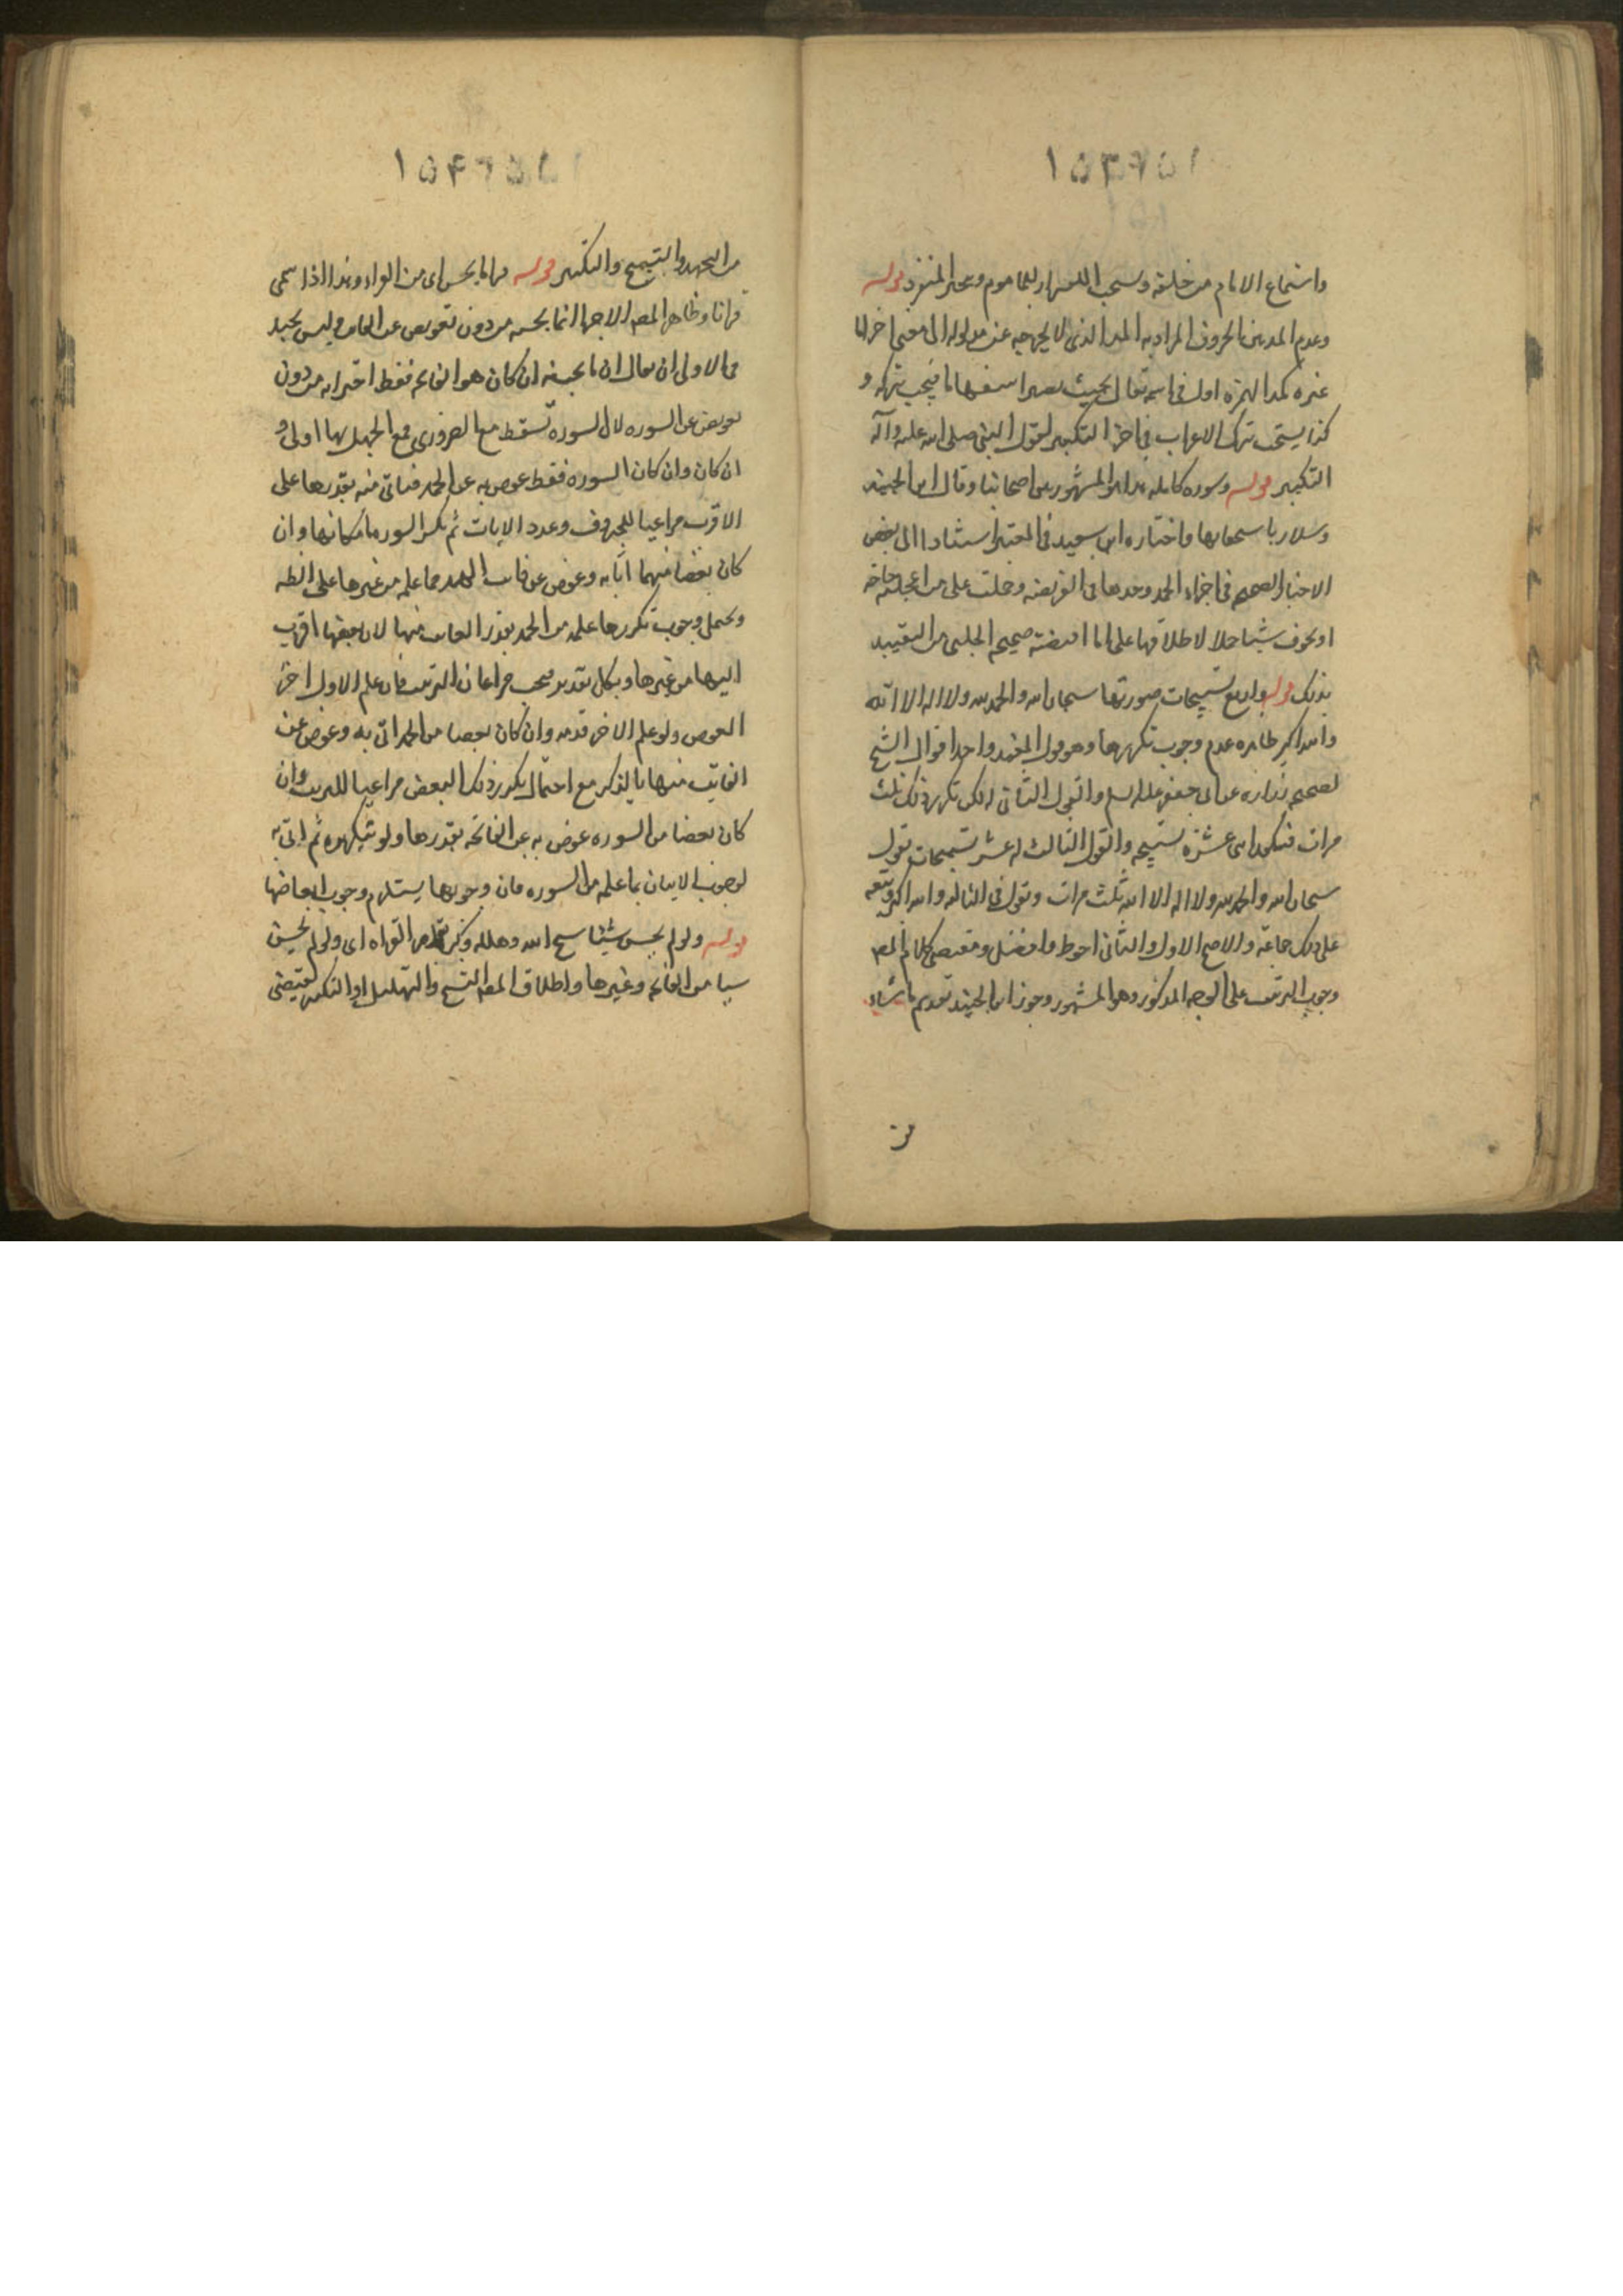 واسماع الامام من خلفه ويستحب الاسرار للماموم ويتخير المنفرد قوله
وعدم المد بين الحروف المراد به المد الذى لا يخرج به عن مدلوله الى معنى اخر اما
غيره كمد الهمزه اول اسمه تعالى بحيث يصير استفهاما فيجب تركه و
كذا يستحب ترك الاعراب فى اخر التكبير لقول النبى صلى الله عليه وآله
التكبير قوله وسوره كامله هذا هو المشهور بين اصحابنا وقال ابن الجنيد
وسلار باستحبابها واختاره ابن سعيد فى المعتبر استنادا الى بعض
الاخبار الصحيحه فى اجزاء الحمد وحدها فى الفريضه وحملت على من اعجلته حاجه
او تخوف شيئا حملا لاطلاقها على ما اقتضته صحيحه الحلبى من التقييد
بذلك قوله واربع تسبيحات صورتها سبحان الله والحمد لله ولا اله الا الله
والله اكبر ظاهره عدم وجوب تكررها وهو قول المفيد واحد اقوال الشيخ
لصحيحه زراره عن ابى جعفر عليه السلم والقول الثانى له تكرر ذلك ثلث
مرات فتكون اثنى عشره تسبيحه والقول الثالث له عشر تسبيحات تقول
سبحان الله والحمد لله ولا اله الا الله ثلث مرات وتقول فى الثالثه والله اكبر وتبعه
على ذلك جماعه والاصح الاول والثانى احوط وافضل ومقتضى كلام المص
وجوب الترتيب على الوجه المذكور وهو المشهور وجوز ابن الجنيد تقديم ما شاء
من
من التحميد والتسبيح والتكبير قوله قرا ما يحسن اى من القراءه وهذا اذا سمى
قرانا وظاهر المص الاجتزا بما يحسنه من دون تعويض عن الفايت وليس بجيد
فالاولى ان يقال ان ما يحسنه ان كان هو الفاتحه فقط اجتزا به من دون
تعويض عن السوره لان السوره تسقط مع الضروره فمع الجهل بها اولى و
ان كان وان كان السوره فقط عوض به عن الحمد فياتى منه بقدرها على
الاقرب مراعيا للحروف وعدد الايات ثم يكرر السوره مكانها وان
كان بعضا منهما اتا به وعوض عن فايت الحمد مما علمه من غيرها على الظه
ويحتمل وجوب تكرر ما علمه من الحمد بقدر الفايت منها لان بعضها اقرب
اليها من غيرها وبكل تقدير فيجب مراعاه الترتيب فان علم الاول اخر
العوض ولو علم الاخر قدمه وان كان بعضا من الحمد اتى به وعوض عن
الفايت منها بالذكر مع احتمال تكرر ذلك البعض مراعيا للترتيب وان
كان بعضا من السوره عوض به عن الفاتحه بقدرها ولو بتكريره ثم اتى به
لوجوب الاتيان بما علمه من السوره فان وجوبها يستلزم وجوب ابعاضها
قوله ولو لم يحسن شيئا سبح الله وهلله وكبره بقدر القراه اى ولو لم يحسن
شيئا من الفاتحه وغيرها واطلاق المص التسبيح والتهليل والتكبير يقتضى